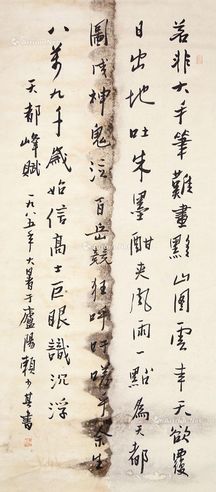 若非大手筆難畫黟山圖雲奉天欲覆
日出地吐朱墨酣夾風雨一點為天都
圖成神鬼泣百岳競狂呼吁嗟乎余生
八萬九千歲始信高士巨眼識沉浮
天都峰賦 一九八五年大暑于廬陽賴少其書